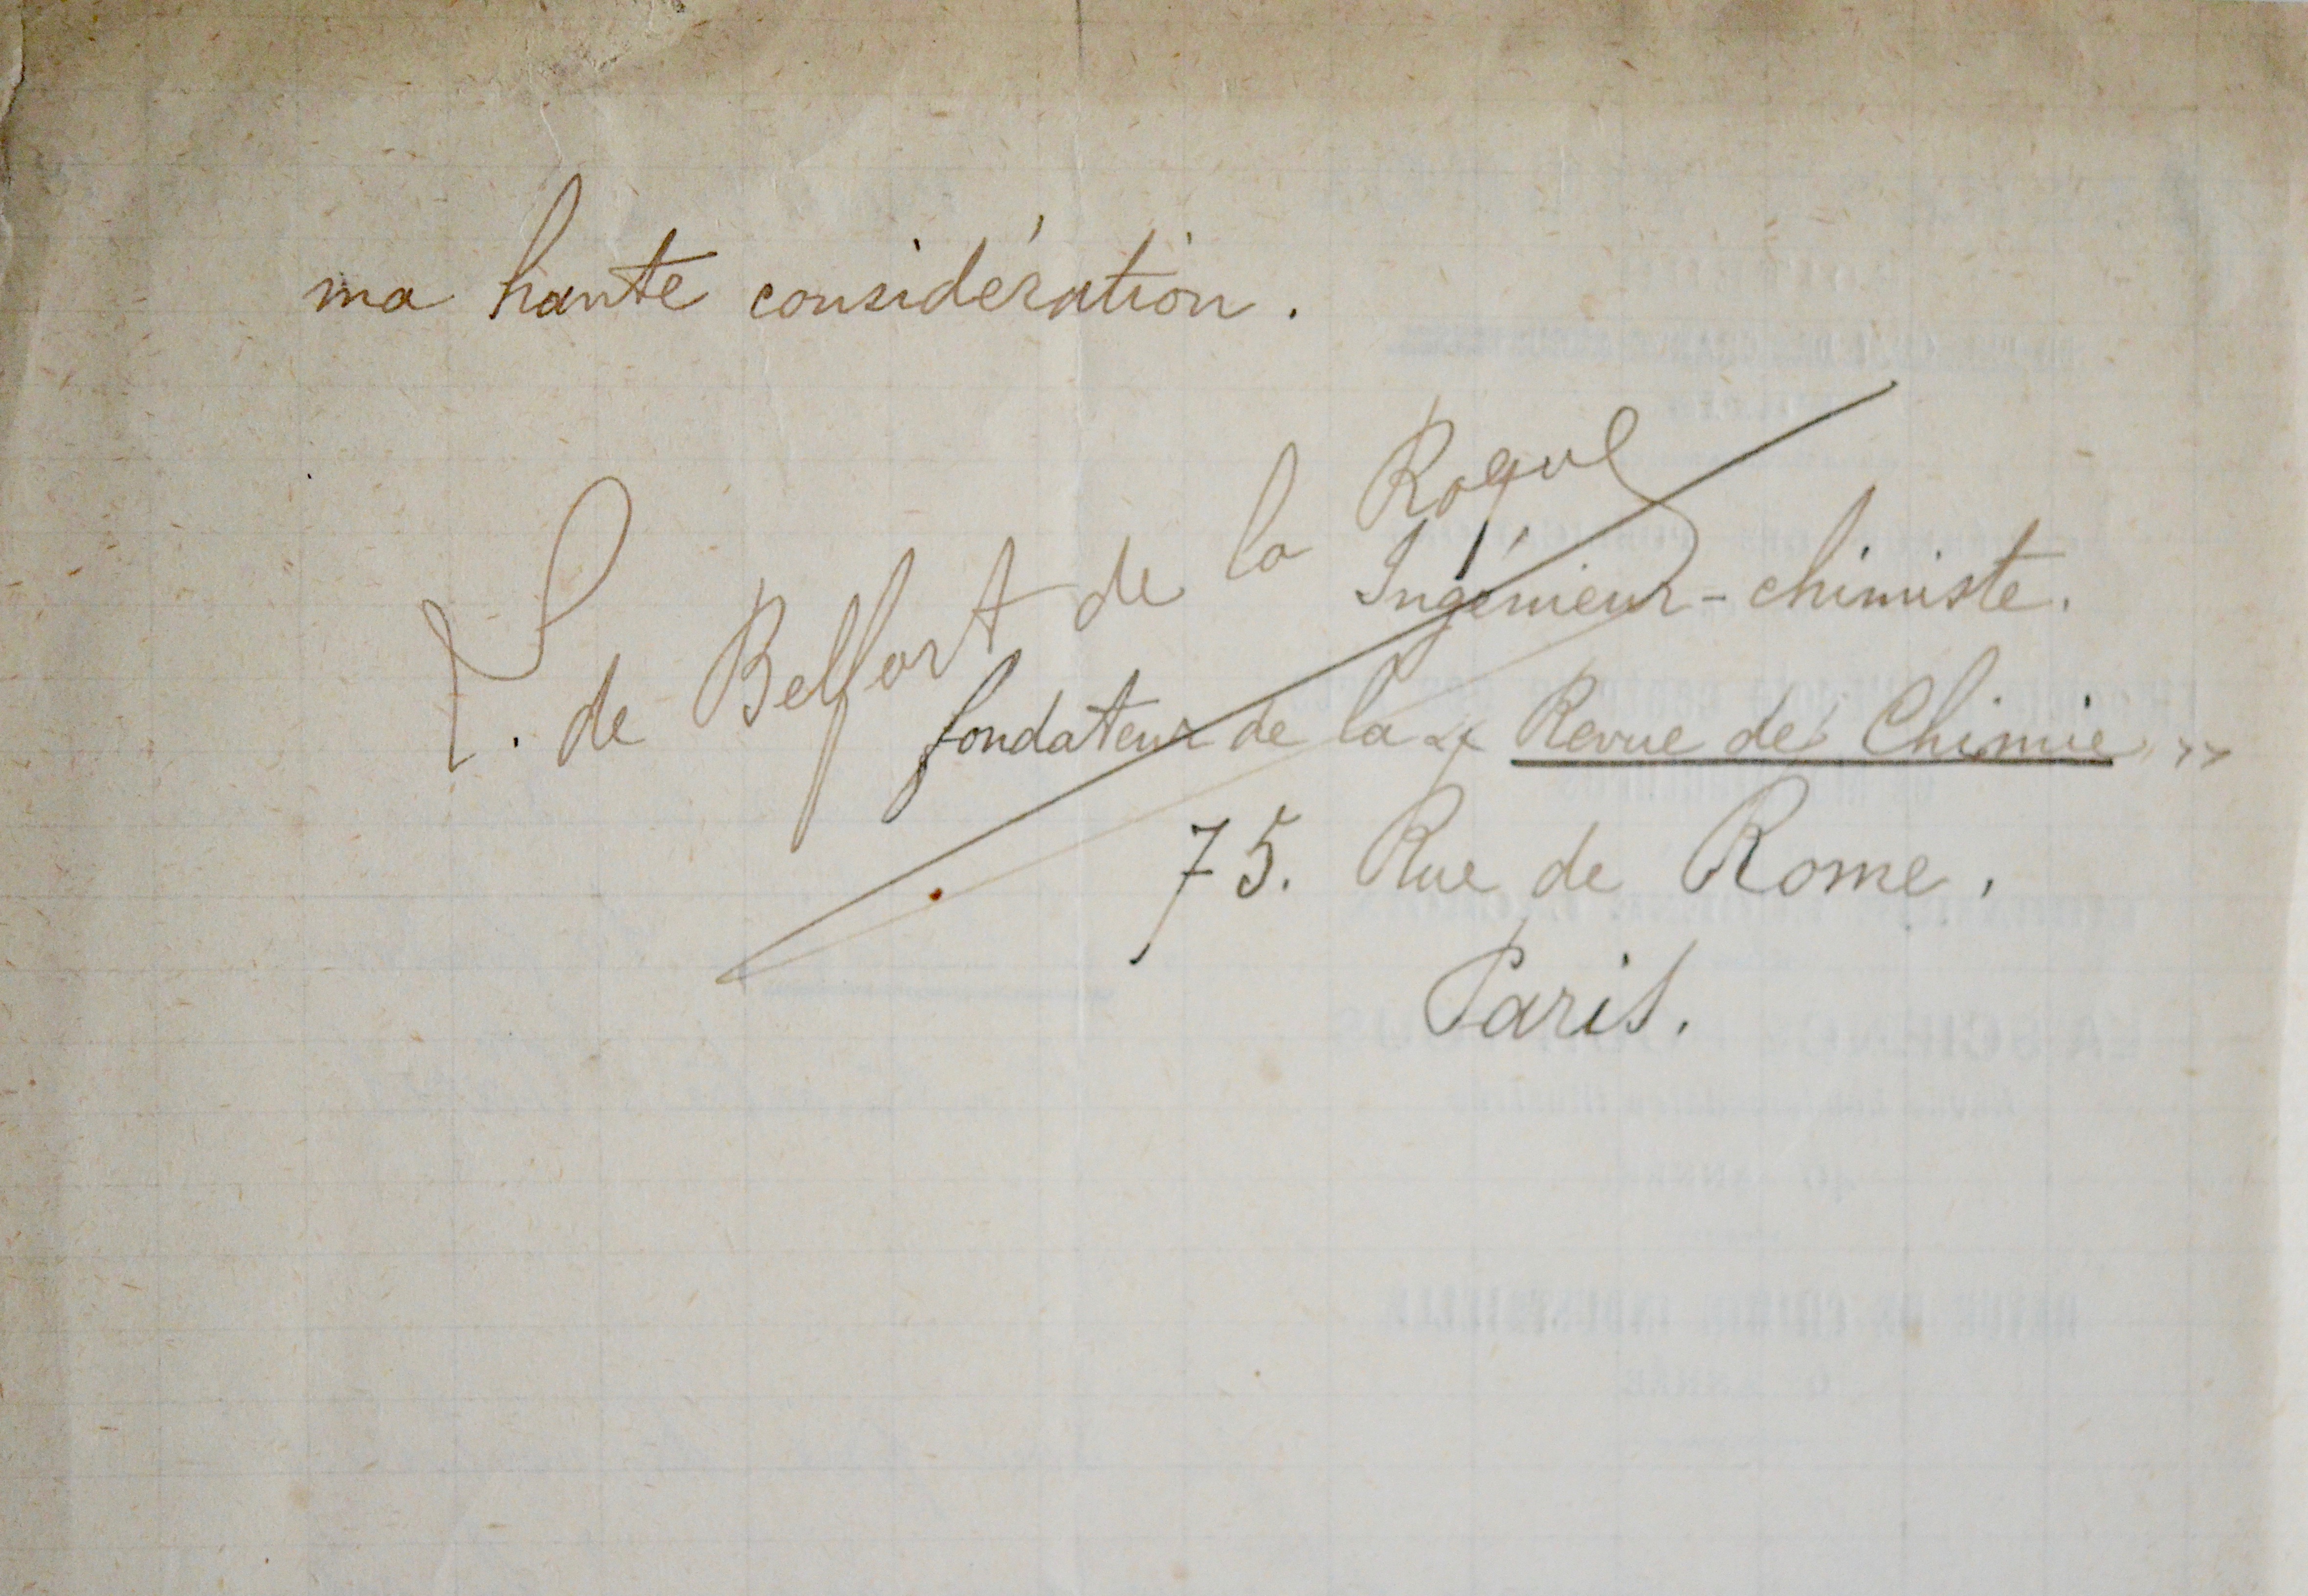 ma haute considération.
L. de Belfort de la Roque
Ingénieur-chimiste.
fondateur de la « Revue de Chimie »
75. Rue de Rome.
Paris.